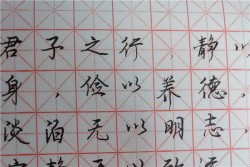 君子之行,静以
身,俭以养德,
淡泊无以明志